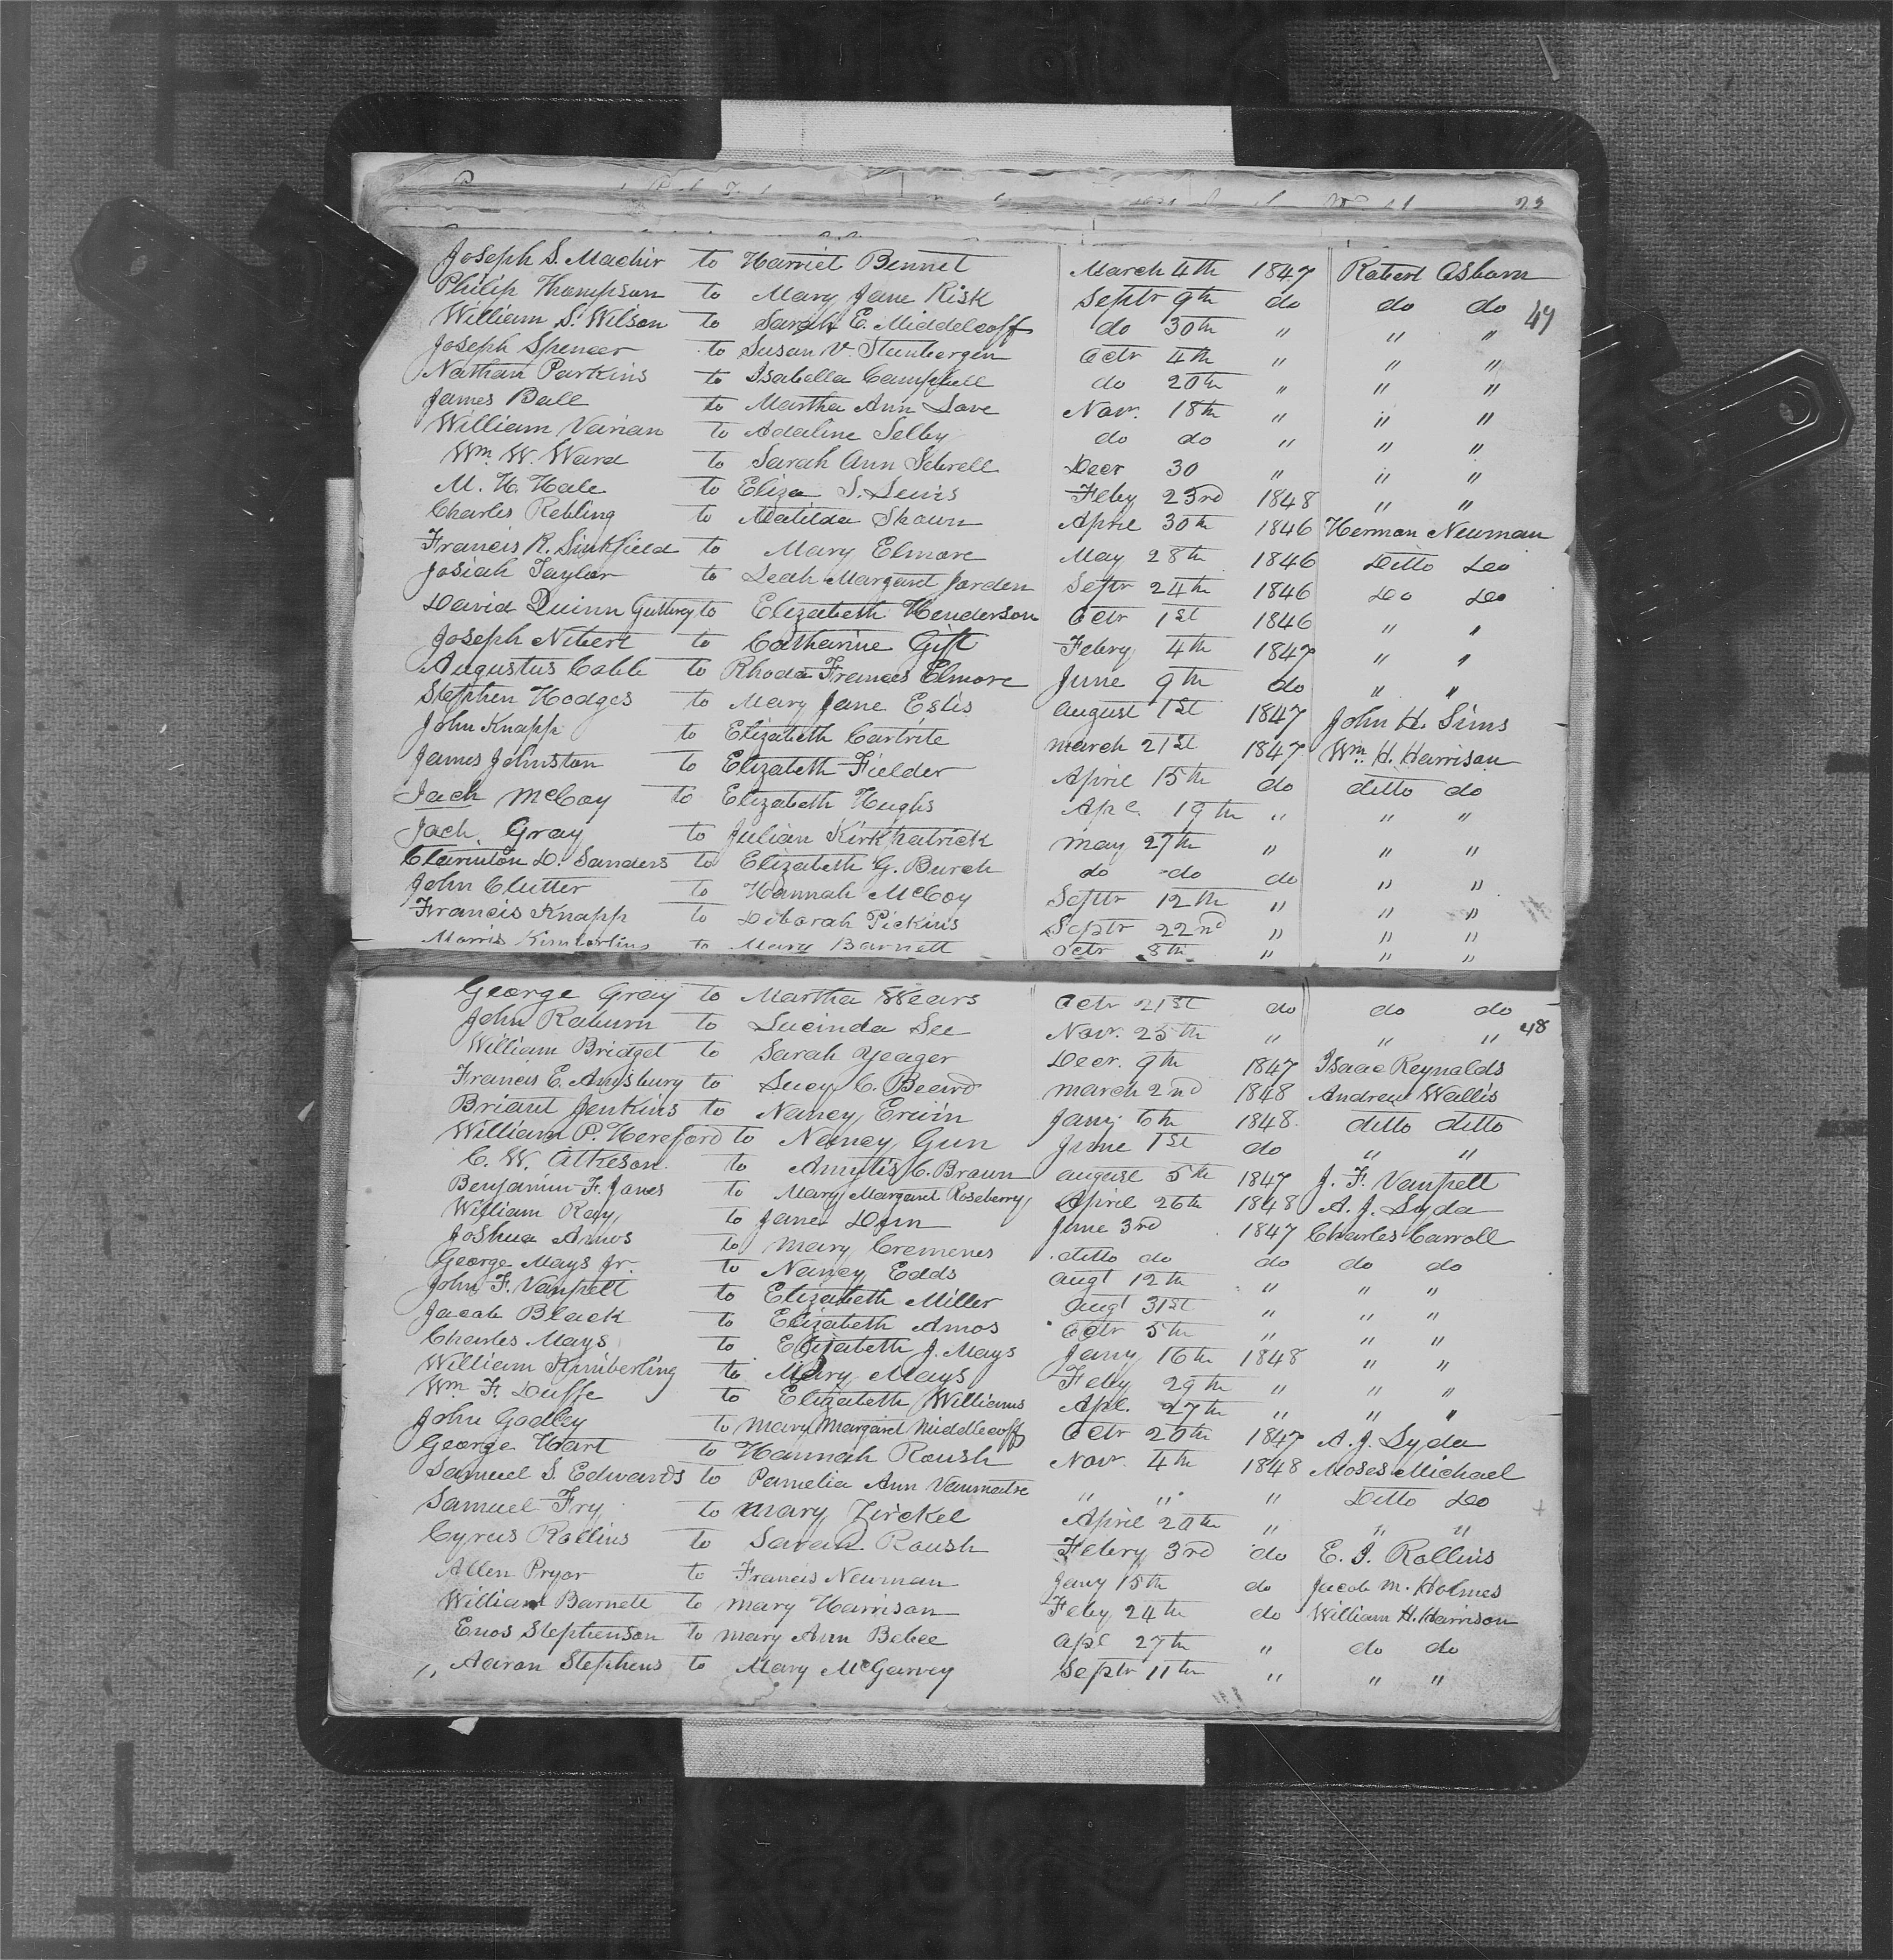 23
Joseph S. Machir to Harriet Bennet March 4th 1847 Robert Osborn
Philip Thompson to Mary Jane Risk Septr 9th do do do 49
William S. Wilson to Sarah E. Middelcoff do 30th " " "
Joseph Spencer to Susan V. Steenbergen Octr 4th " " "
Nathan Parkins to Isabella Campbell do 20th " " "
James Ball to Martha Ann Love Nov. 18th " " "
William Varian to Adaline Selby do do " " "
Wm. W. Ward to Sarah Ann Sebrell Decr 30 " " "
M. H. Hale to Eliza S. Lewis Feby 23rd 1848 " "
Charles Rebling to Matilda Shown April 30th 1846 Herman Newman
Francis R. Sinkfield to Mary Elmore May 28th 1846 Ditto Do
Josiah Taylor to Leah Margaret Jorden Septr 24th 1846 Do Do
David Quinn Guthrey to Elizabeth Henderson Octr 1st 1846 " "
Joseph Nibert to Catharine Gift Febry 4th 1847 " "
Augustus Cobb to Rhoda Frances Elmore June 9th do " "
Stephen Hodges to Mary Jane Estis August 1st 1847 John H. Sims
John Knapp to Elizabeth Cartrite March 21st 1847 Wm. H. Harrison
James Johnston to Elizabeth Fielder April 15th do ditto do
Jack McCoy to Elizabeth Hughs Apl. 19th " " "
Jack Gray to Julian Kirkpatrick May 27th " " "
Clarinton D. Sanders to Elizabeth G. Burch do do do " "
John Clutter to Hannah McCoy Septr 12th " " "
Francis Knapp to Deborah Pickins Septr 22nd " " "
Morris Kimberling to Mary Barnett Octr 8th " " "
George Gray to Martha Wears Octr 21st do do do
John Raburn to Lucinda See Nov. 25th " " " 48
William Bridget to Sarah Yeager Decr. 9th 1847 Isaac Reynolds
Francis E. Amsbury to Lucy C. Beard March 2nd 1848 Andrew Wallis
Briant Jenkins to Nancy Erwin Jany 6th 1848 ditto ditto
William P. Hereford to Nancy Gun June 1st do " "
C. W. Atkeson to Amytis C. Braun August 5th 1847 J. F. Vanpelt
Benjamin F. Jones to Mary Margaret Roseberry April 26th 1848 A. J. Lyda
William Ray to Jane June 3rd 1847 Charles Carroll
Joshua Amos to Mary Cremenes ditto do do do do
George Mays Jr. to Nancy Edds Augt 12th " " "
John F. Vanpelt to Elizabeth Miller Augt 31st " " "
Jacob Black to Elizabeth Amos Octr 5th " " "
Charles Mays to Elizabeth J. Mays Jany 16th 1848 " "
William Kimberling to Mary Mays Feby 29th " " "
Wm. F. Duffe to Elizabeth Williams Apl. 27th " " "
John Godley to Mary Margaret Middlecoff Octr 20th 1847 A. J. Lyda
George Hart to Hannah Roush Nov. 4th 1848 Moses Michael
Samuel S. Edwards to Pamelia Ann Vanmatre " " " Ditto Do
Samuel Fry to Mary Zirkel April 20th " " "
Cyrus Rollins to Sarah Roush Febry 3rd do E. I. Rollins
Allen Pryor to Francis Newman Jany 15th do Jacob M. Holmes
William Barnett to Mary Harrison Feby 24th do William H. Harrison
Enos Stephenson to Mary Ann Bebee Apl 27th " do do
" Aaron Stephens to Mary McGarvey Septr 11th " " "